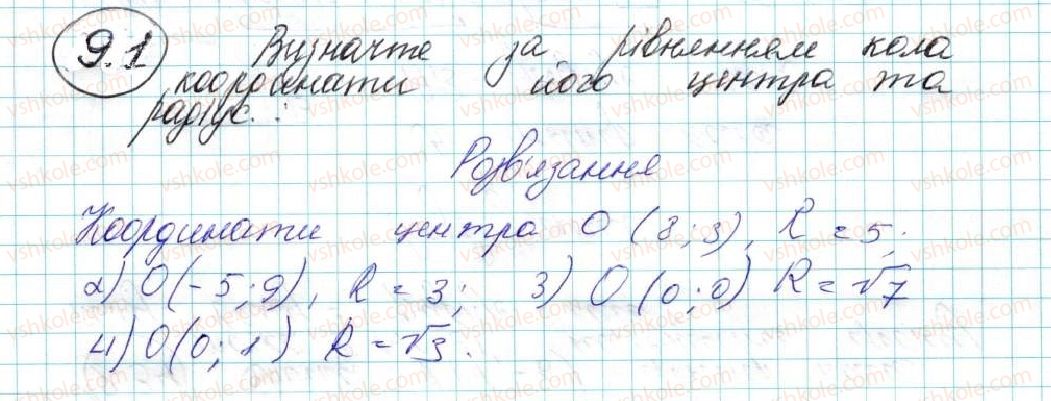 9.1 Визначте за рівнянням кола
координати його центра та
радіус.:
Розв'язання
Координати центра O (8;3), R = 5;
2) O(-5;9), R = 3; 3) O (0;0) R = √7
4) O(0;1) R = √3.